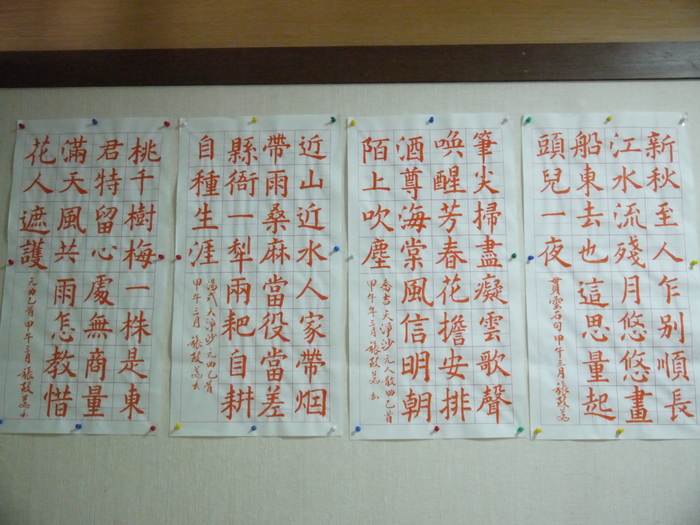 新秋至人乍別順長
江水流殘月悠悠畫
船東去也這思量起
頭兒一夜
貫雲石句 甲午三月
筆尖掃盡癡雲歌聲
喚醒芳春花擔安排
酒尊海棠風信明朝
陌上吹塵
喬吉天淨沙元人散曲
甲午年三月
近山近水人家帶烟
帶雨桑麻當役當差
縣衙一犁兩耙自耕
自種生涯
湯式天淨沙元曲
甲午三月
桃千樹梅一株是東
君特留心處無商量
滿天風共雨怎教惜
花人遮護
元曲 甲午三月